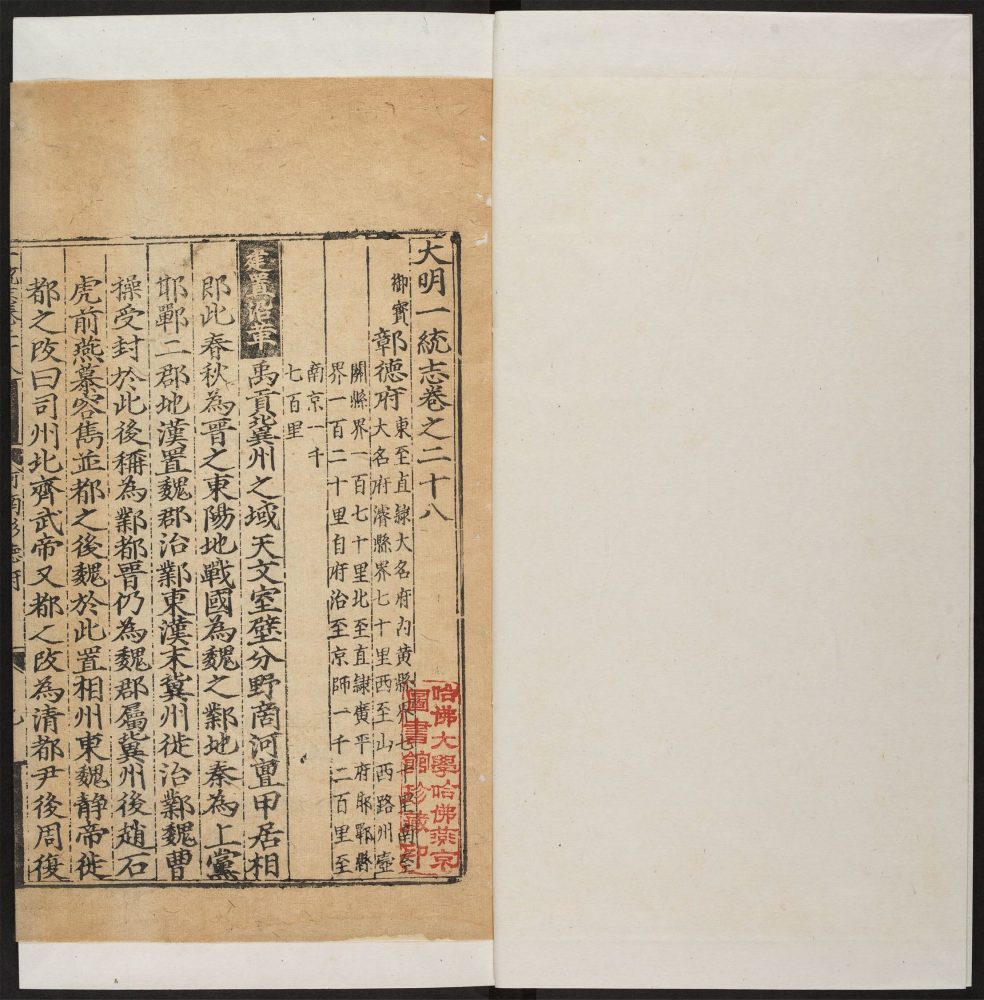 大明一統志卷之二十八
御寳
彰德府
東至直隸大名府内黄縣界七十里南至
大名府濬縣界七十里西至山西路州壺
關縣界一百七十里北至直隸廣平府邯鄲縣
界一百二十里自府治至京師一千二百里至
南京一千
七百里
建置沿革 禹貢冀州之域天文室壁分野啇河亶甲居相
即此春秋為晉之東陽地戰國為魏之鄴地秦為上黨
邯鄲二郡地漢置魏郡治鄴東漢末冀州徙治鄴魏曹
操受封於此後稱為鄴都晉仍為魏郡屬冀州後趙石
虎前燕慕容雋並都之後魏於此置相州東魏静帝徙
都之改曰司州北齊武帝又都之改為清都尹後周復
河南彰德府
哈佛大學哈佛燕京
圖書館珍藏印